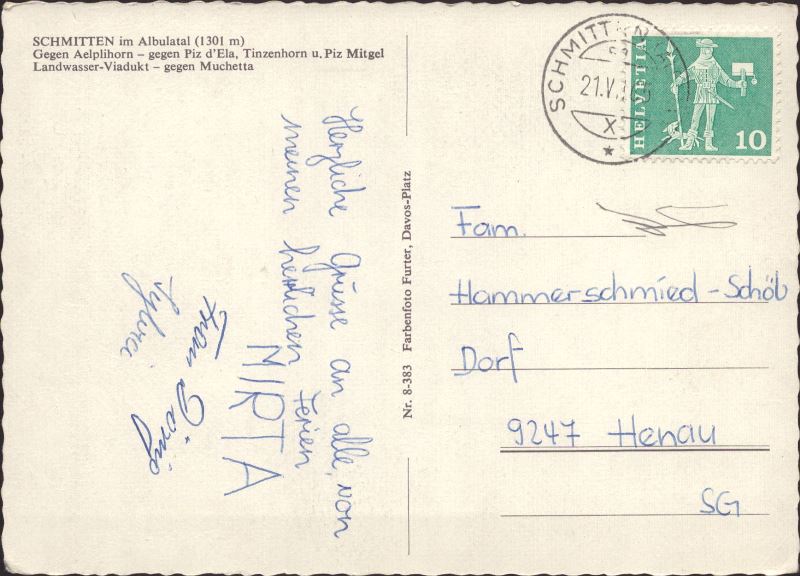 SCHMITTEN im Albulatal (1301 m)
Gegen Aelplihorn – gegen Piz d'Ela, Tinzenhorn u. Piz Mitgel
Landwasser-Viadukt – gegen Muchetta
Herzliche Grüsse an alle, von
meinen herlichen Ferien
MIRTA
Nr. 8-383 Farbenfoto Furter, Davos-Platz
SCHMITTEN
21.V.
X
HELVETIA
10
Fam.
Hammerschmied-Schöb
Dorf
9247 Henau
SG